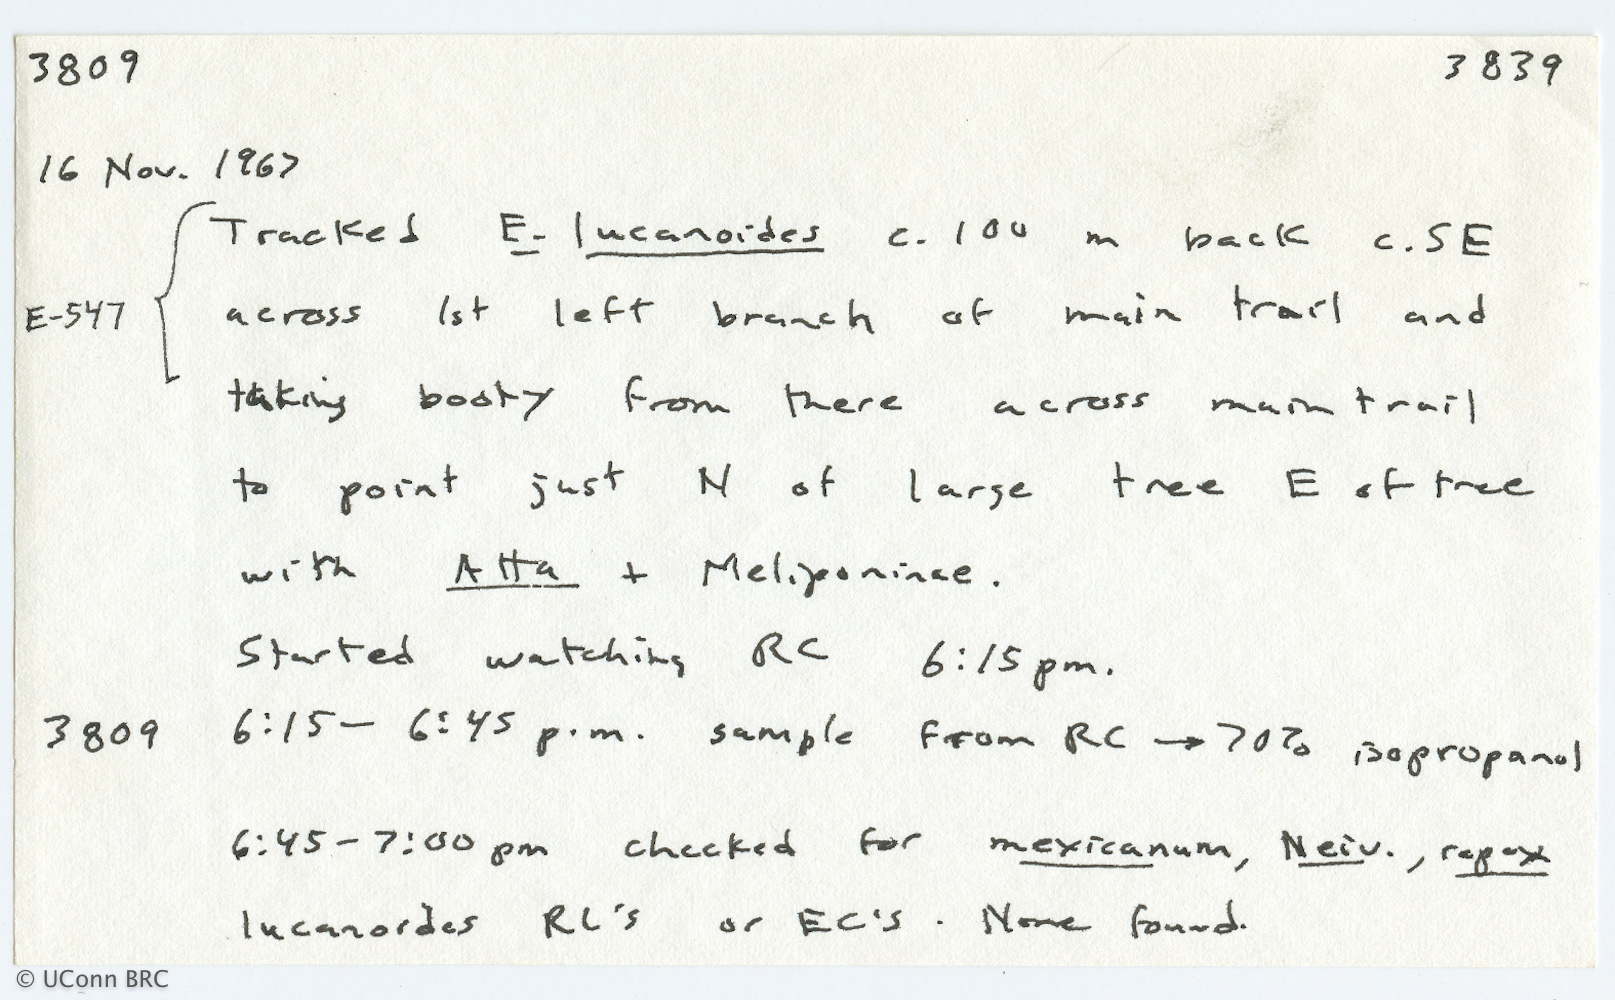 3809 3839
16 Nov. 1967
Tracked E. lucanoides c. 100 m back c. SE
E-547 across 1st left branch of main trail and
taking booty from there across main trail
to point just N of large tree E of tree
with Atta + Meliponinae.
Started watching RC 6:15 pm.
3809 6:15 - 6:45 p.m. sample from RC → 70% isopropanol
6:45 - 7:00 pm checked for mexicanum, Neiv., rapax
lucanoides RC's or EC's. None found.
© UConn BRC